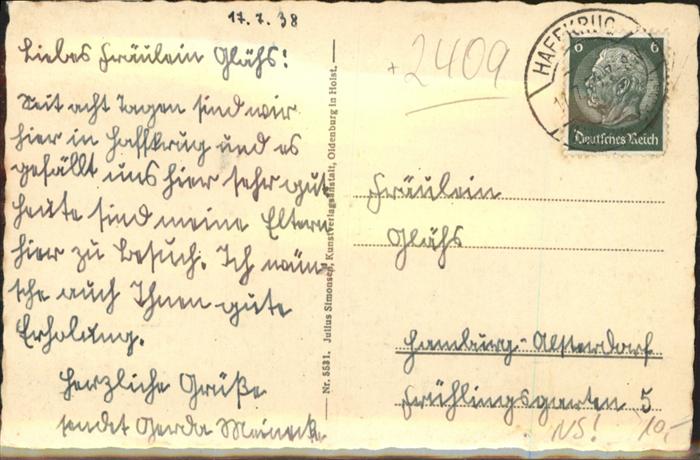 17.7.38
Liebes Fräulein Glähs!
Seit acht Tagen sind wir
hier in Haffkrug und es
gefällt uns hier sehr gut
heute sind meine Eltern
hier zu Besuch. Ich wün-
sche auch Ihnen gute
Erholung.
Herzliche Grüße
sendet Gerda Meinecke
Nr. 5531. Julius Simonsen, Kunstverlagsanstalt, Oldenburg in Holst.
2409
HAFFKRUG
6 6
Deutsches Reich
Fräulein
Glähs
Hamburg-Alsterdorf
Frühlingsgarten 5
NS!
10,-